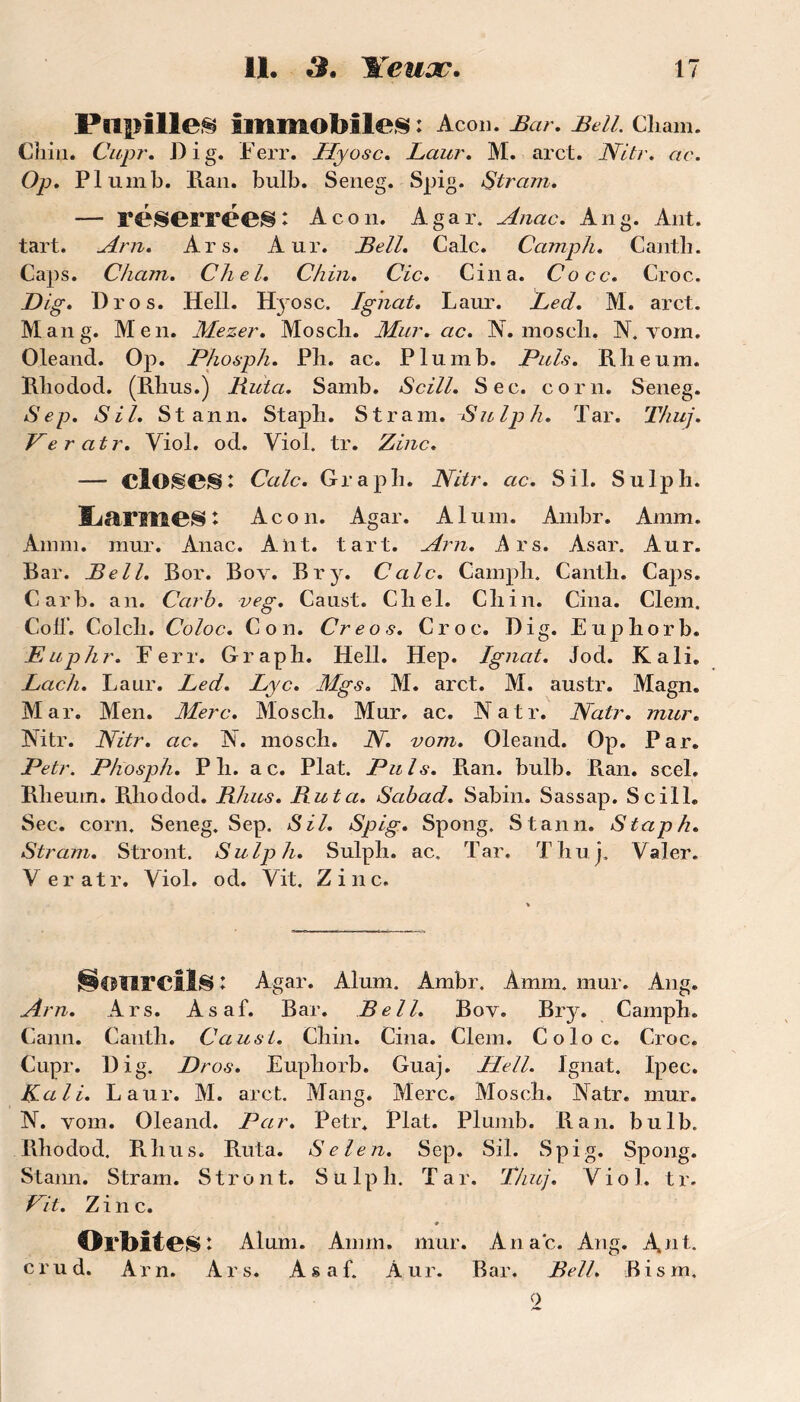 II. 3. Yeux. 17
Pupilles immobiles: Acon. Bar. Bell. Cham.
Chin. Cupr. Dig. Ferr. Hyosc. Laur. M. arct. Nitr. ac.
Op. Plumb. Ran. bulb. Seneg. Spig. Stram.
— réserrées: Acon. Agar. Anac. Ang. Ant.
tart. Arn. Ars. Aur. Bell. Calc. Camph. Canth.
Caps. Cham. Chel. Chin. Cic. Cina. Cocc. Croc.
Dig. Dros. Hell. Hyosc. Ignat. Laur. Led. M. arct.
Mang. Men. Mezer. Mosch. Mur. ac. N. mosch. N. vom.
Oleand. Op. Phosph. Ph. ac. Plumb. Puls. Rheum.
Rhodod. (Rhus.) Ruta. Samb. Scill. Sec. corn. Seneg.
Sep. Sil. Stann. Staph. Stram. Sulph. Tar. Thuj.
Veratr. Viol. od. Viol. tr. Zinc.
— closes: Calc. Graph. Nitr. ac. Sil. Sulph.
Larmes: Acon. Agar. Alum. Ambr. Amm.
Amm. mur. Anac. Ant. tart. Arn. Ars. Asar. Aur.
Bar. Bell. Bor. Bov. Bry. Calc. Camph. Canth. Caps.
Carb. an. Carb. veg. Caust. Chel. Chin. Cina. Clem.
Coff. Colch. Coloc. Con. Creos. Croc. Dig. Euphorb.
Euphr. Ferr. Graph. Hell. Hep. Ignat. Jod. Kali.
Lach. Laur. Led. Lyc. Mgs. M. arct. M. austr. Magn.
Mar. Men. Merc. Mosch. Mur. ac. Natr. Natr. mur.
Nitr. Nitr. ac. N. mosch. N. vom. Oleand. Op. Par.
Petr. Phosph. Ph. ac. Plat. Puls. Ran. bulb. Ran. scel.
Rheum. Rhodod. Rhus. Ruta. Sabad. Sabin. Sassap. Scill.
Sec. corn. Seneg. Sep. Sil. Spig. Spong. Stann. Staph.
Stram. Stront. Sulph. Sulph. ac. Tar. Thuj. Valer.
Veratr. Viol. od. Vit. Zinc.
Sourcils: Agar. Alum. Ambr. Amm. mur. Ang.
Arn. Ars. Asaf. Bar. Bell. Bov. Bry. Camph.
Cann. Canth. Caust. Chin. Cina. Clem. Coloc. Croc.
Cupr. Dig. Dros. Euphorb. Guaj. Hell. Ignat. Ipec.
Kali. Laur. M. arct. Mang. Merc. Mosch. Natr. mur.
N. vom. Oleand. Par. Petr. Plat. Plumb. Ran. bulb.
Rhodod. Rhus. Ruta. Selen. Sep. Sil. Spig. Spong.
Stann. Stram. Stront. Sulph. Tar. Thuj. Viol. tr.
Vit. Zinc.
Orbites: Alum. Amm. mur. Anac. Ang. Ant.
crud. Arn. Ars. Asaf. Aur. Bar. Bell. Bism.
2